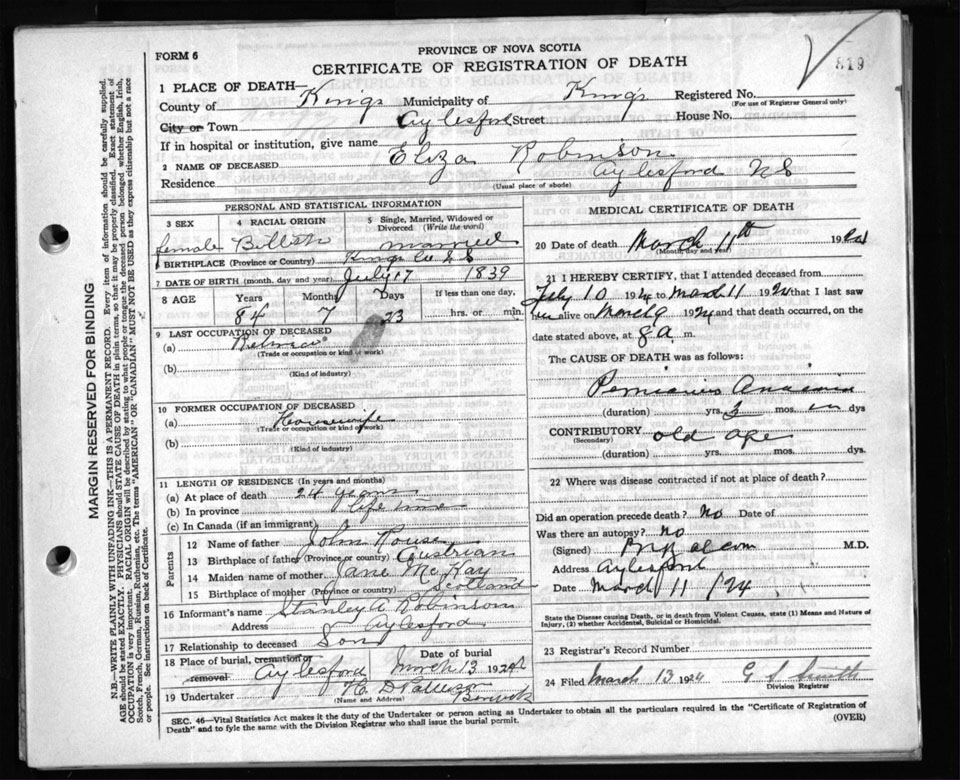 FORM 6
PROVINCE OF NOVA SCOTIA
CERTIFICATE OF REGISTRATION OF DEATH
819
1 PLACE OF DEATH—
County of Kings Municipality of Kings Registered No.
(For use of Registrar General only)
City or Town Aylesford Street House No.
If in hospital or institution, give name
2 NAME OF DECEASED Eliza Robinson
Residence Aylesford N S
(Usual place of abode)
PERSONAL AND STATISTICAL INFORMATION
3 SEX 4 RACIAL ORIGIN 5 Single, Married, Widowed or Divorced (Write the word)
female married
6 BIRTHPLACE (Province or Country) Kings Co N S
7 DATE OF BIRTH (month, day and year) July 17 1839
8 AGE Years Months Days If less than one day,
84 7 23 hrs. or min.
9 LAST OCCUPATION OF DECEASED
(a) Retired
(Trade or occupation or kind of work)
(b)
(Kind of industry)
10 FORMER OCCUPATION OF DECEASED
(a) Housewife
(Trade or occupation or kind of work)
(b)
(Kind of industry)
11 LENGTH OF RESIDENCE (In years and months)
(a) At place of death 24 years
(b) In province life time
(c) In Canada (if an immigrant)
Parents
12 Name of father John Rouse
13 Birthplace of father (Province or country)
14 Maiden name of mother Jane McKay
15 Birthplace of mother (Province or country) Scotland
16 Informant's name Stanley A Robinson
Address Aylesford
17 Relationship to deceased Son
18 Place of burial, cremation or removal Aylesford Date of burial March 13 1924
19 Undertaker H. D Berwick
(Name and Address)
MEDICAL CERTIFICATE OF DEATH
20 Date of death March 11th 1924
(Month, day and year)
21 I HEREBY CERTIFY, that I attended deceased from
10 1924 to March 11 1924 that I last saw
her alive on March 9 1924 and that death occurred, on the
date stated above, at 8 a. m.
The CAUSE OF DEATH was as follows:
Pernicious Anaemia
(duration) yrs. mos. dys
CONTRIBUTORY old age
(Secondary)
(duration) yrs. mos. dys.
22 Where was disease contracted if not at place of death?
Did an operation precede death? No Date of
Was there an autopsy? No
(Signed) M.D.
Address Aylesford
Date March 11 /24
State the Disease causing Death, or in death from Violent Causes, state (1) Means and Nature of Injury, (2) whether Accidental, Suicidal or Homicidal.
23 Registrar's Record Number
24 Filed March 13 1924 G S Smith
Division Registrar
SEC. 46—Vital Statistics Act makes it the duty of the Undertaker or person acting as Undertaker to obtain all the particulars required in the "Certificate of Registration of
Death" and to fyle the same with the Division Registrar who shall issue the burial permit.
(OVER)
MARGIN RESERVED FOR BINDING
N.B.—WRITE PLAINLY WITH UNFADING INK—THIS IS A PERMANENT RECORD. Every item of information should be carefully supplied.
AGE should be stated EXACTLY. PHYSICIANS should STATE CAUSE OF DEATH in plain terms, so that it may be properly classified. Exact statement of
OCCUPATION is very important. RACIAL ORIGIN will be described by stating to what people or tongue the deceased person belonged whether English, Irish,
Scotch, French, German, Russian, Ruthenian, etc. The terms "AMERICAN" OR "CANADIAN" MUST NOT BE USED as they express citizenship but not a race
or people. See instructions on back of Certificate.